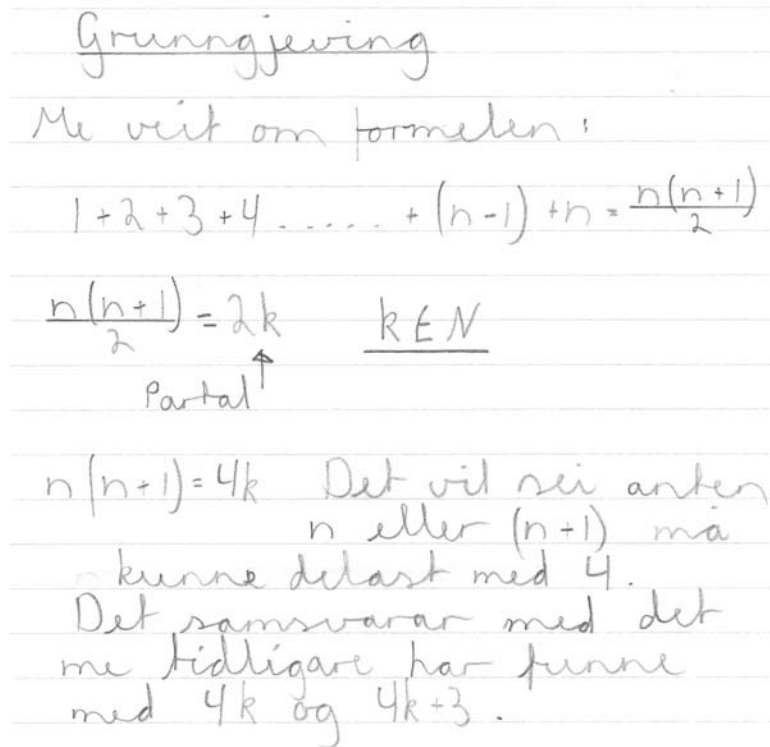 Grunngjeving
Me veit om formelen:
1+2+3+4 ...... + (n-1) +n = n(n+1)/2
n(n+1)/2 = 2k k ∈ N
Partal ↑
n(n+1)=4k Det vil sei anten
n eller (n+1) må
kunne delast med 4.
Det samsvarar med det
me tidligare har funne
med 4k og 4k+3.